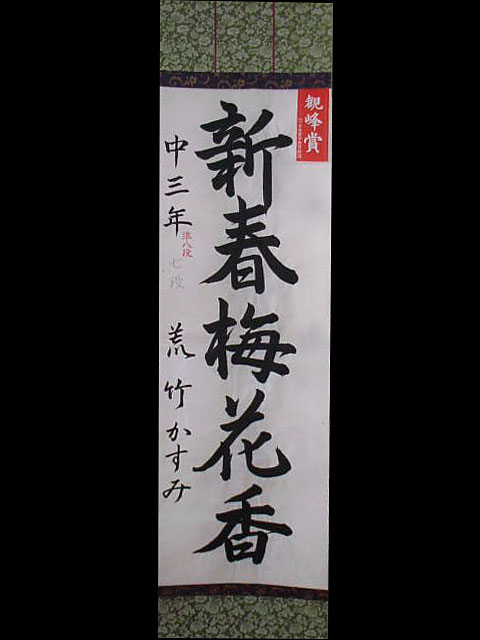 観峰賞
新春梅花香
中三年
準八段
七段
荒竹かすみ